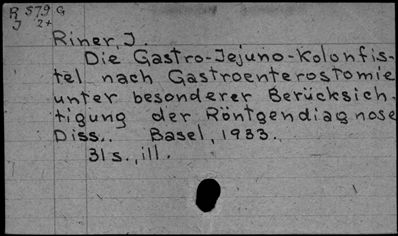 R 579 G
J 2+
Riner, J.
Die Gastro-Jejuno-Kolonfis-
tel nach Gastroenterostomie
unter besonderer Berücksich-
tigung der Röntgendiagnose
Diss.. Basel, 1933.
31 s., ill.